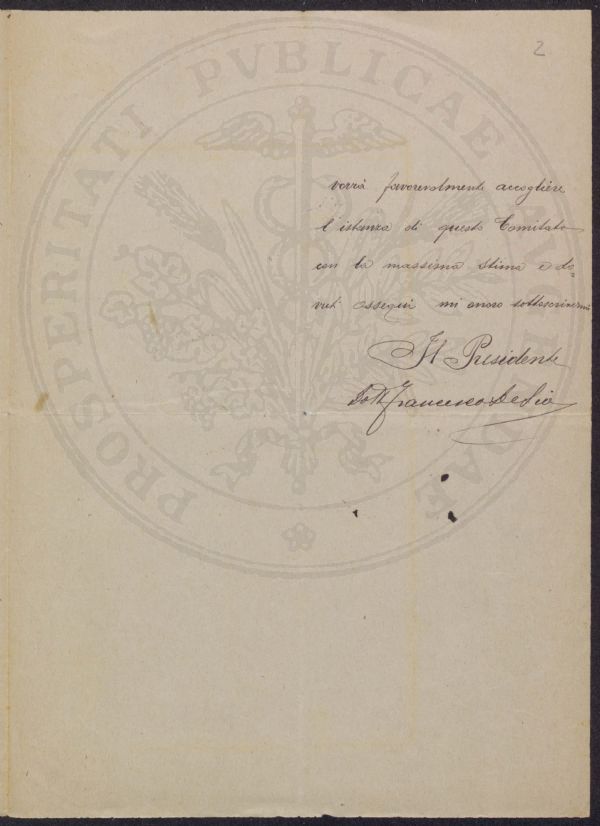 2
vorrà favorevolmente accogliere
l'istanza di questo Comitato
con la massima stima e do=
vuti ossequi mi onoro sottoscrivermi
Il Presidente
Dott Francesco De Sio
PROSPERITATI PVBLICAE